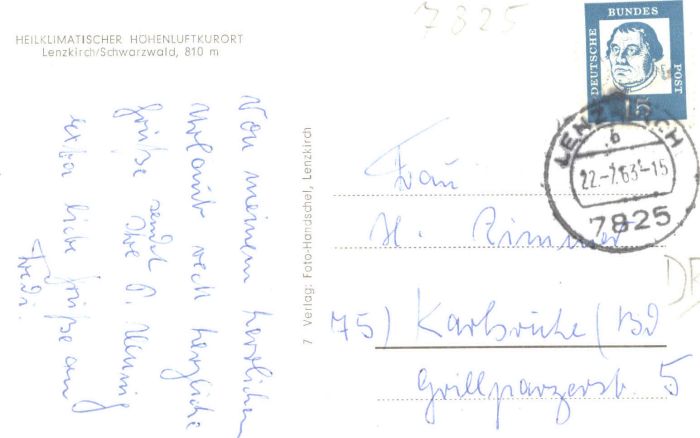 7825
HEILKLIMATISCHER HÖHENLUFTKURORT
Lenzkirch/Schwarzwald, 810 m
Von meinem herrlichen
Urlaub recht herzliche
Grüße sendet
Ihre
extra liebe Grüße an
Fredi.
7 Verlag: Foto-Handschel, Lenzkirch
DEUTSCHE BUNDES POST
15
LENZKIRCH
b
22.-7.63-15
7825
Frau
H. Zimmer
75) Karlsruhe/Bd
Grillparzerstr. 5